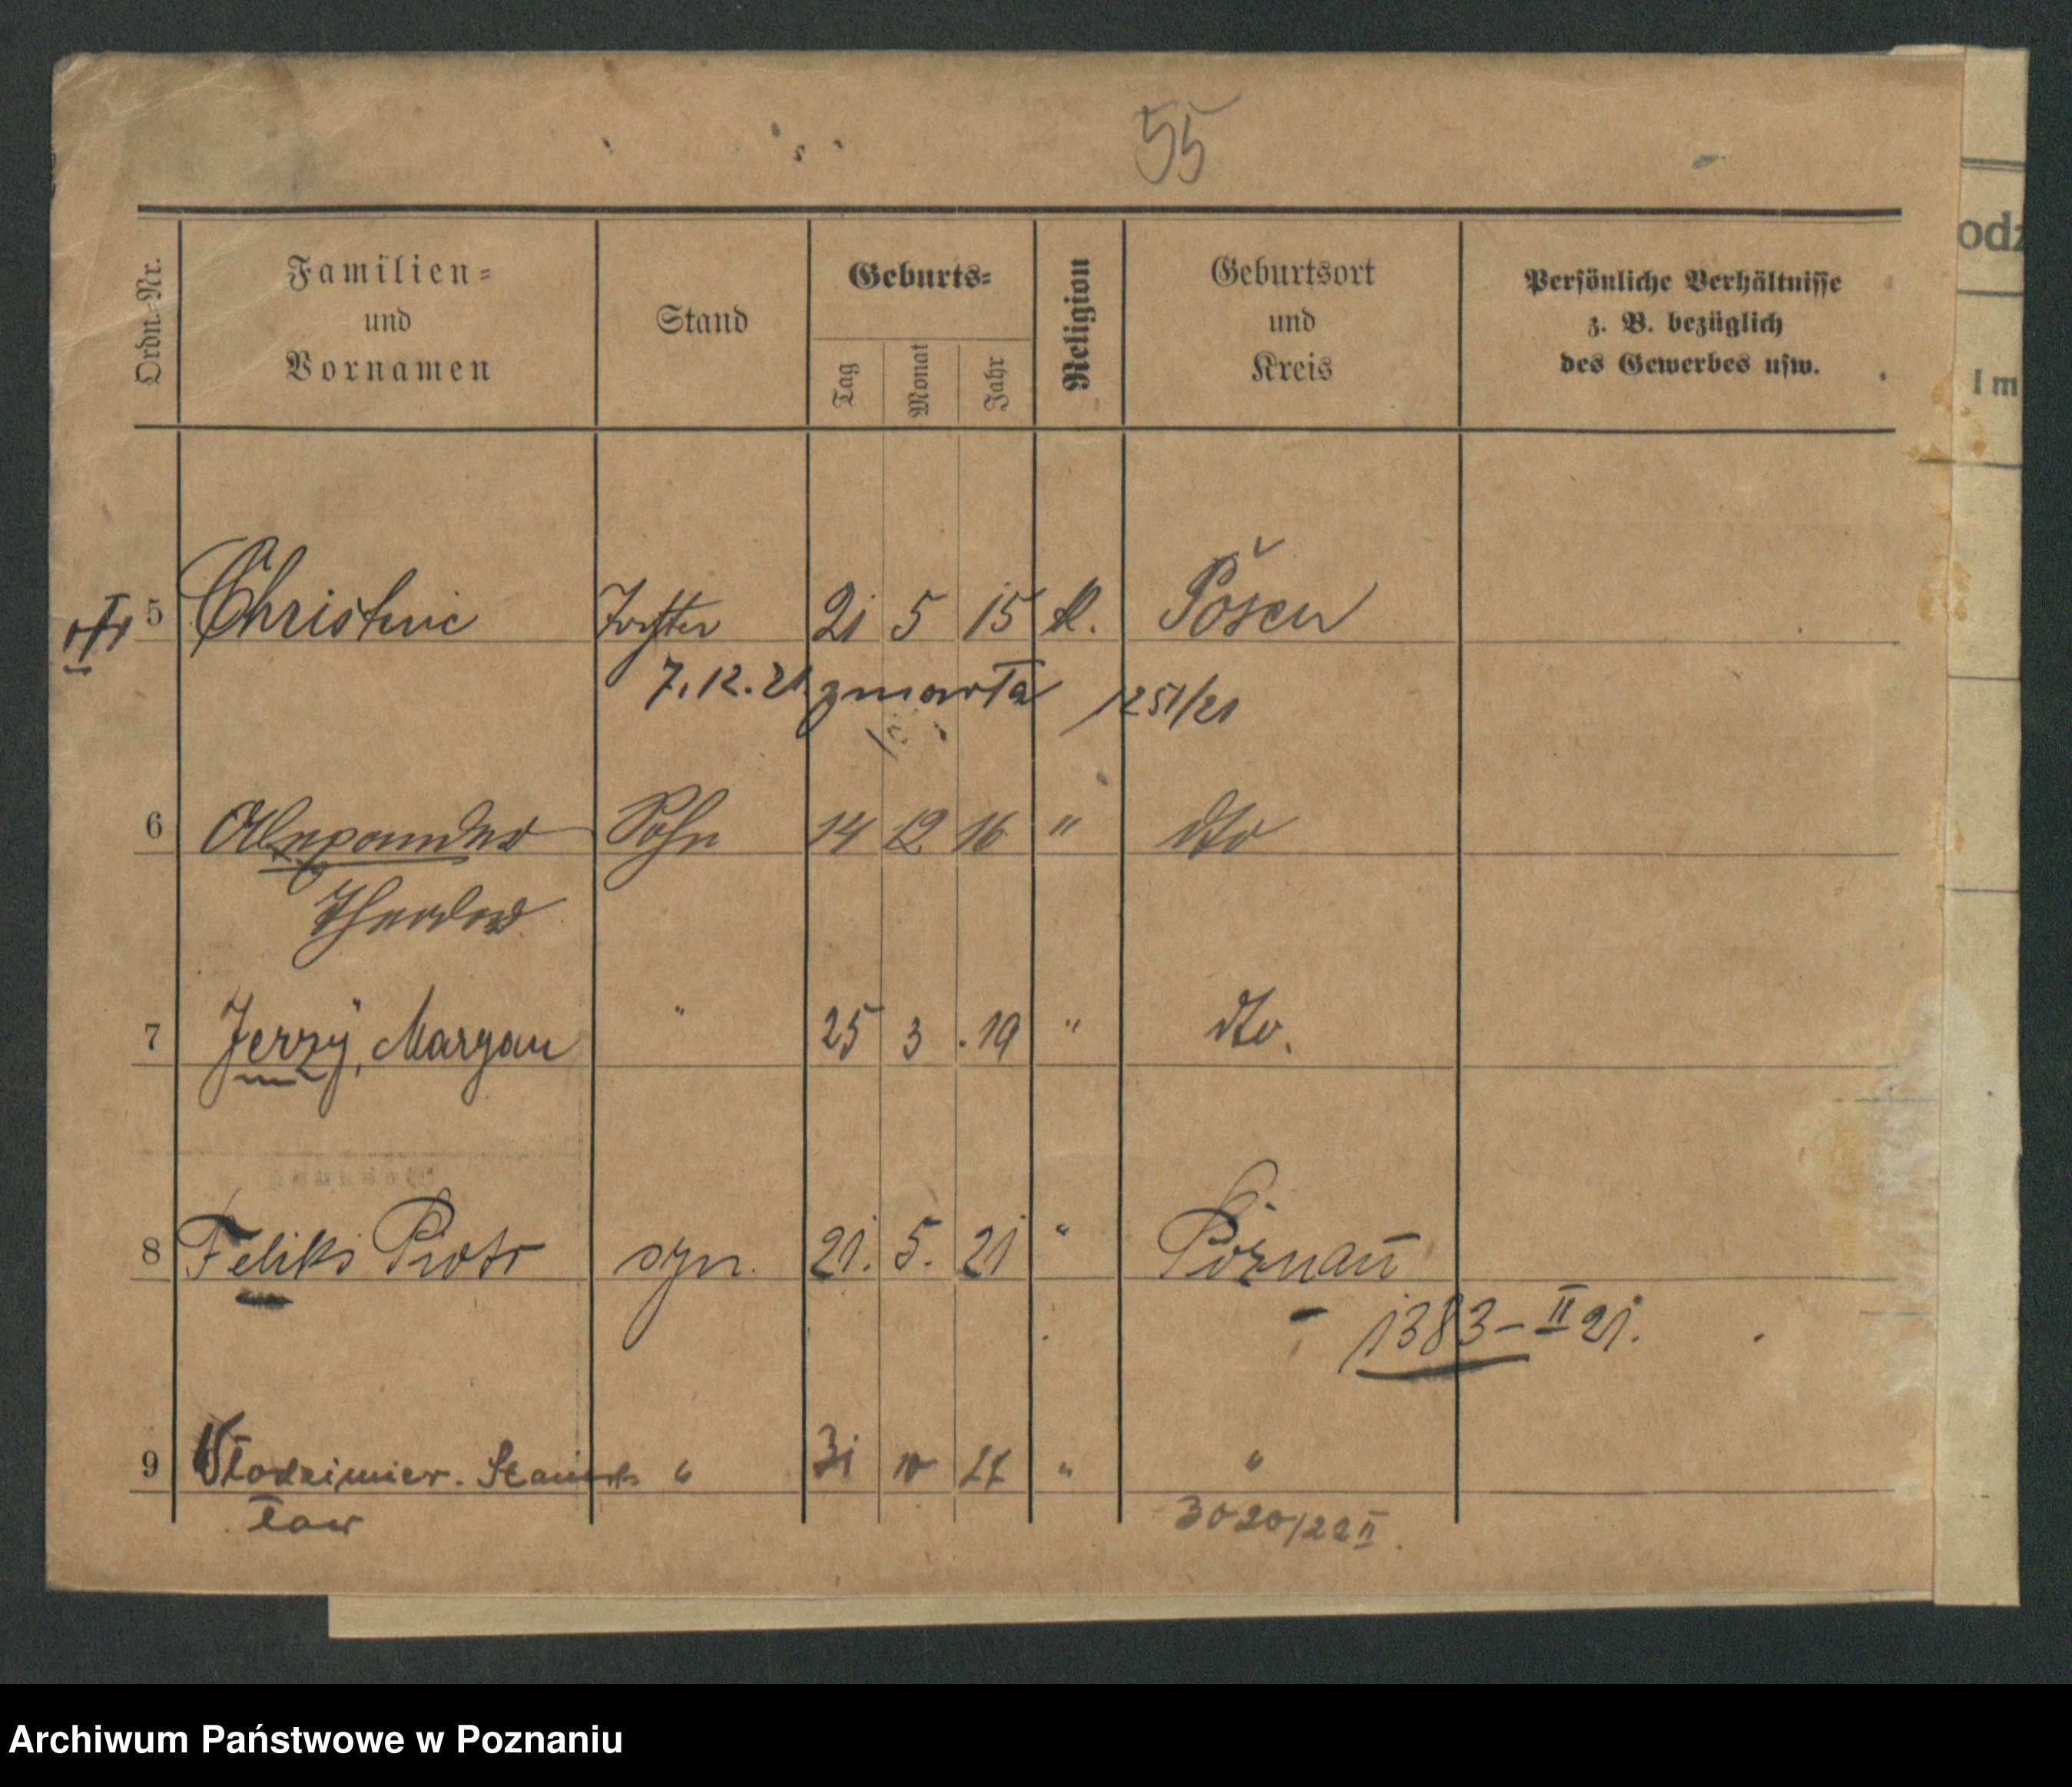 55
Ordn.-Nr. Familien- und Vornamen Stand Geburts- Tag Monat Jahr Religion Geburtsort und Kreis Persönliche Verhältnisse z. B. bezüglich des Gewerbes usw.
odz
Im
5 Christine Tochter 21 5 15 k. Posen
7.12.21 zmarła 1251/21
6 Alexander Sohn 14 12 16 " dto
Theodor
7 Jerzy, Maryan " 25 3 . 19 " dto.
8 Feliks Piotr syn. 21. 5. 21 " Poznań
1383 – II 21.
9 Włodzimier. Stanis- " 31 10 22 " "
ław 3020/22 II.
Archiwum Państwowe w Poznaniu